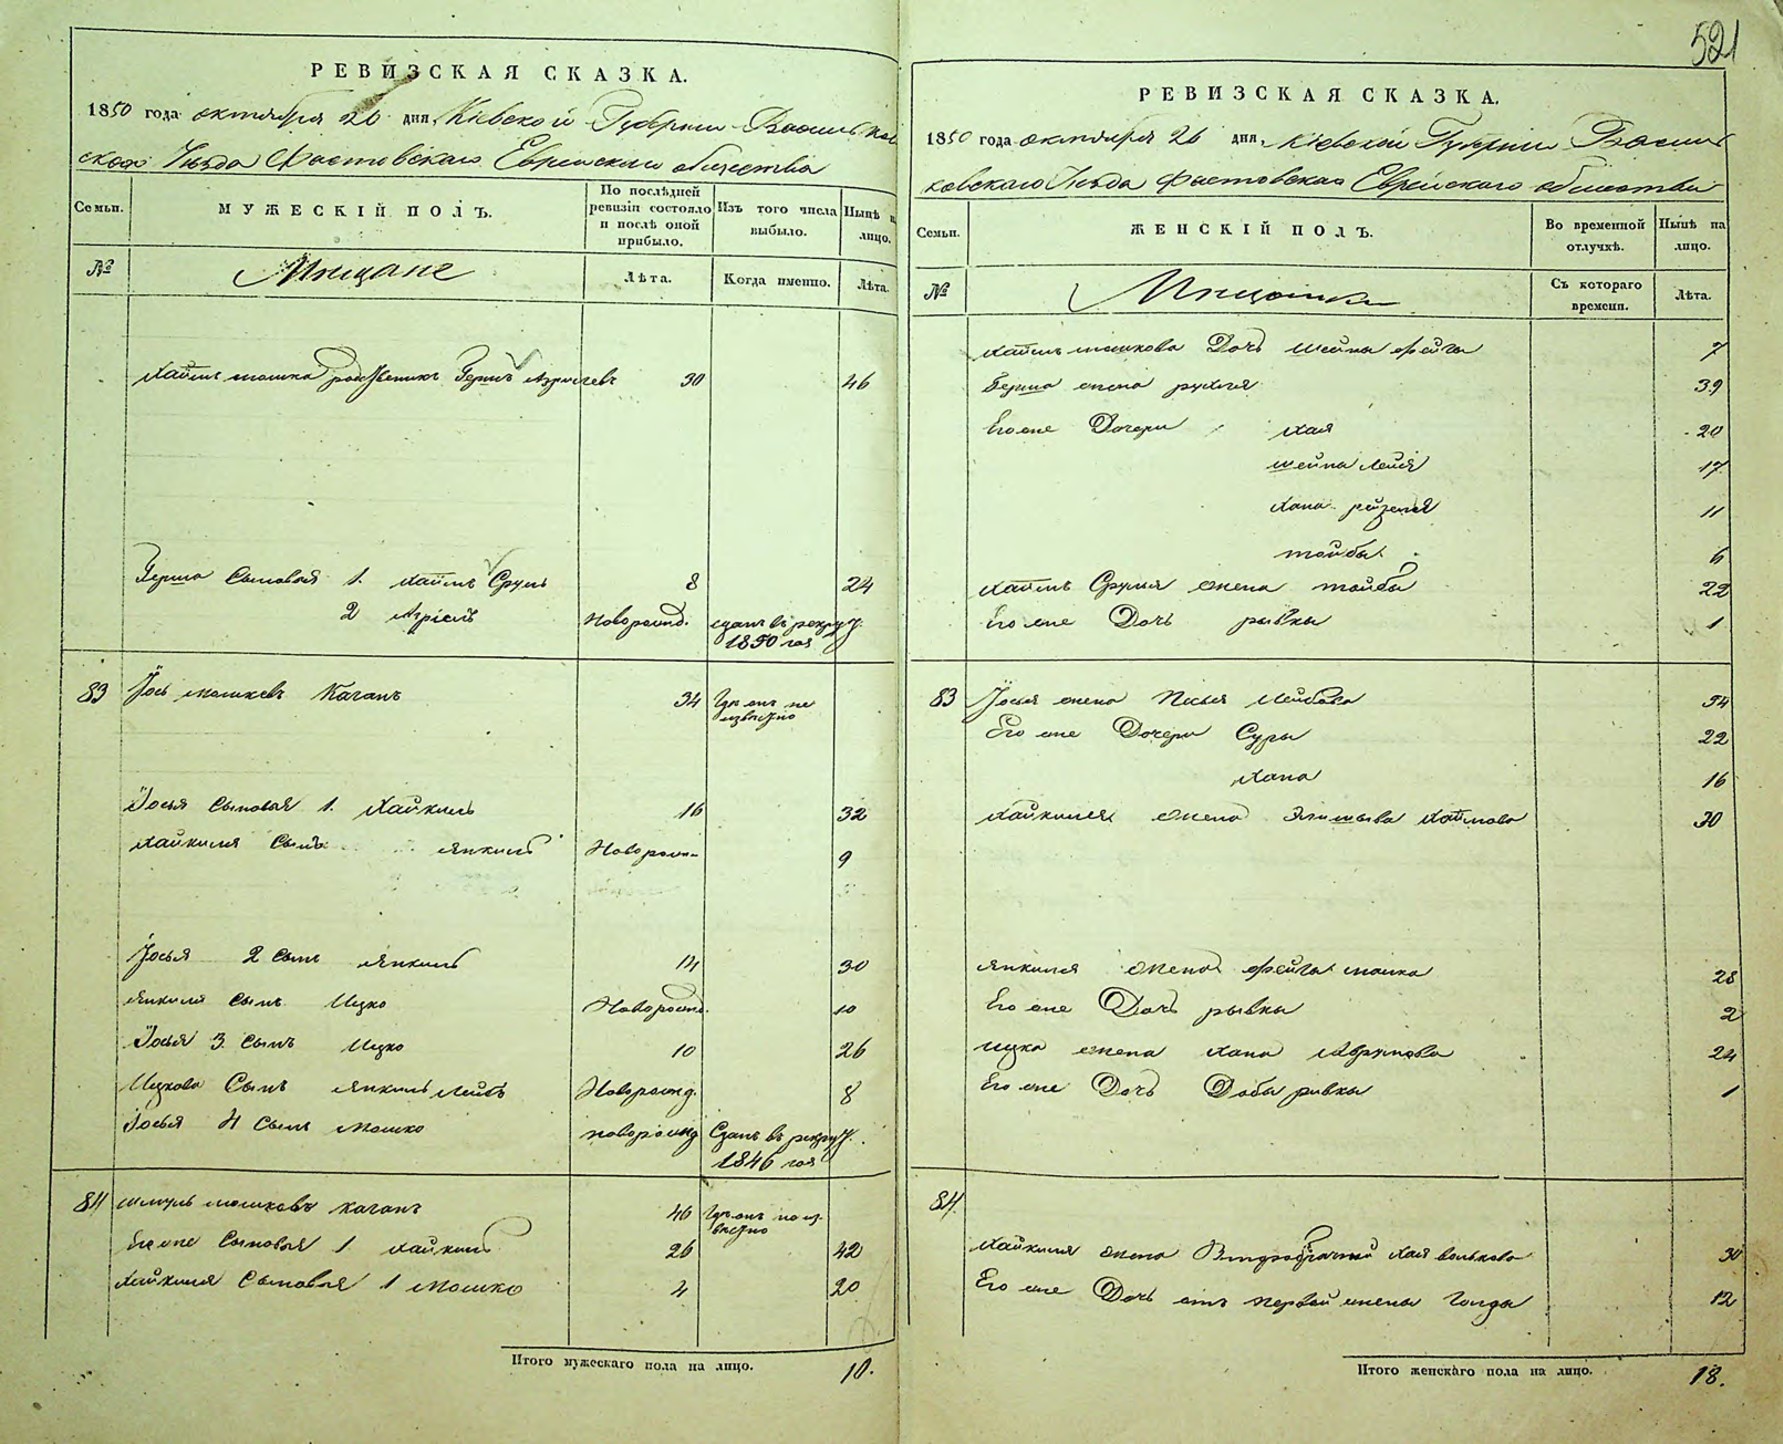 521
РЕВИЗСКАЯ СКАЗКА.
1850 года октября 26 дня, Кіевской Губерніи Василь
ковскаго Уѣзда Фастовскаго Еврейскаго общества
Семьи.
МУЖЕСКІЙ ПОЛЪ.
По послѣдней ревизіи состояло и послѣ оной прибыло.
Изъ того числа выбыло.
Нынѣ на лицо.
№
Мѣщане
Лѣта.
Когда именно.
Лѣта.
Хаймъ мошка родственикъ Гершъ Азріилевъ 30 46
Герша Сыновья 1. Хаимъ Сруль 8 24
2 Азріель Новорожд. сданъ въ рекрут.
1850 года
83 Іось Мошковъ Каганъ 34 Гдѣ онъ не
извѣстно
Іосья Сыновья 1. Хайкиль 16 32
Хайкиля Сынъ Янкиль Новорож- 9
Іосья 2 Сынъ Янкиль 14 30
Янкиля Сынъ Ицко Новорожд. 10
Іосья 3. Сынъ Ицко 10 26
Ицкова Сынъ Янкиль Лейбъ Новорожд. 8
Іосья 4 Сынъ Мошко новорожд Сданъ въ рекрут.
1846 года
84 Шмуль Мошковъ Каганъ 46 Гдѣ онъ не из-
вѣстно
Его же Сыновья 1 Хайкиль 26 42
Хайкиля Сыновья 1 Мошко 4 20
Итого мужескаго пола на лицо. 10.
РЕВИЗСКАЯ СКАЗКА.
1850 года октября 26 дня, Кіевской Губерніи Васил
ковскаго Уѣзда Фастовскаго Еврейскаго общества
Семьи.
ЖЕНСКІЙ ПОЛЪ.
Во временной отлучкѣ.
Нынѣ на лицо.
№
Мѣщанки
Съ котораго времени.
Лѣта.
Хаимъ мошкова Дочь Шейна Фейга 7
Герша жена рухля 39
Его же Дочери Хая 20
Шейна Лейя 17
Хана рейзеля 11
тойба 6
Хаимъ Сруля жена тойба 22
Его же Дочь рывка 1
83 Іосья жена Песья Лейбова 54
Его же Дочери Сура 22
Хана 16
Хайкиля жена Хаимова 30
Янкиля жена Фейга 28
Его же Дочь рывка 2
Ицка жена Хана Аврумова 24
Его же Дочь Доба ривка 1
84.
Хайкиля жена Хая волькова 30
Его же Дочь отъ первой жены Голда 12
Итого женскаго пола на лицо. 18.